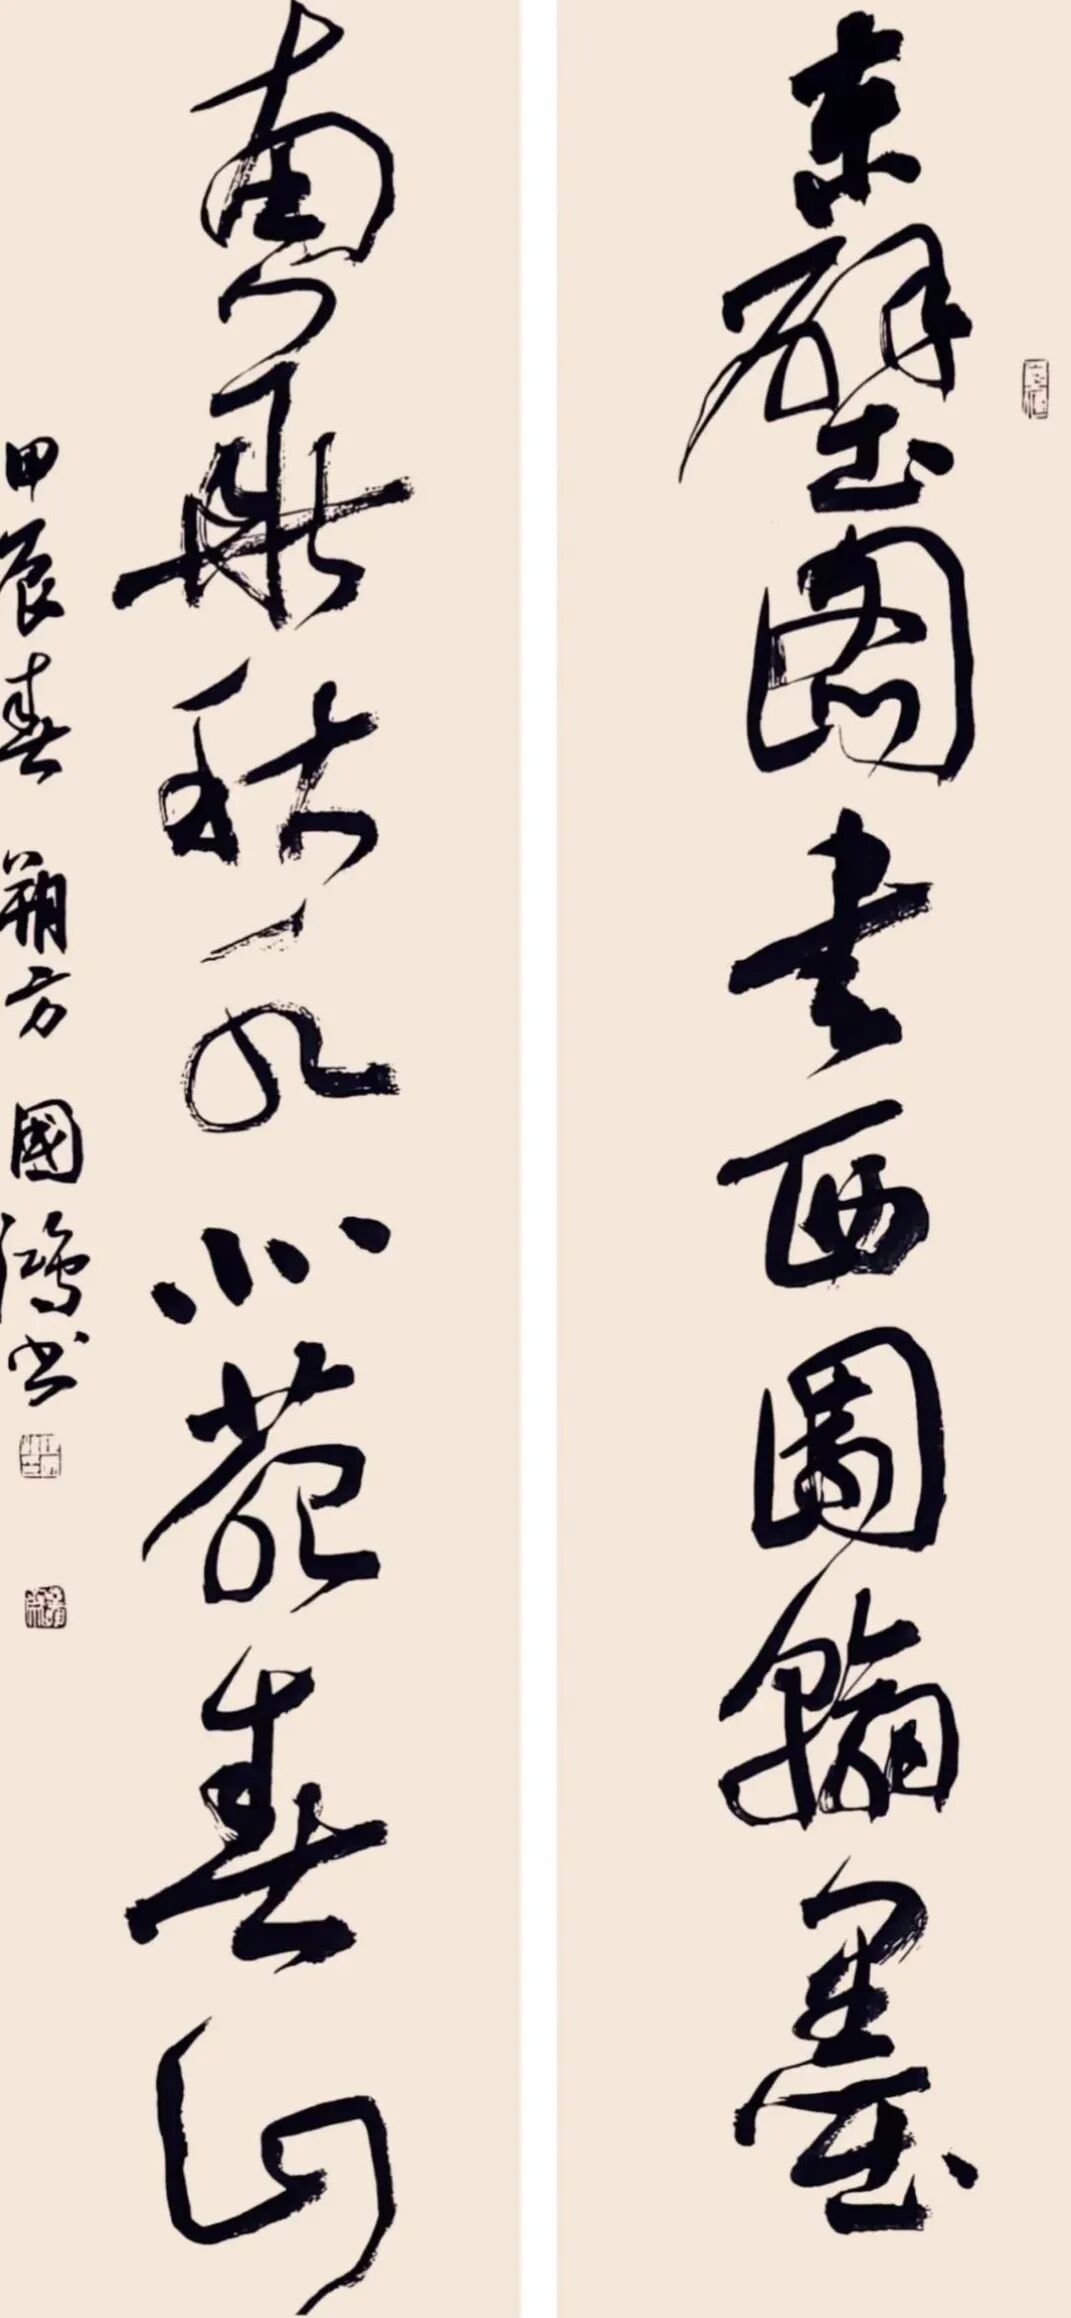 東壁圖書西園翰墨
南華秋水北苑春山
甲辰春 朔方 國鴻书